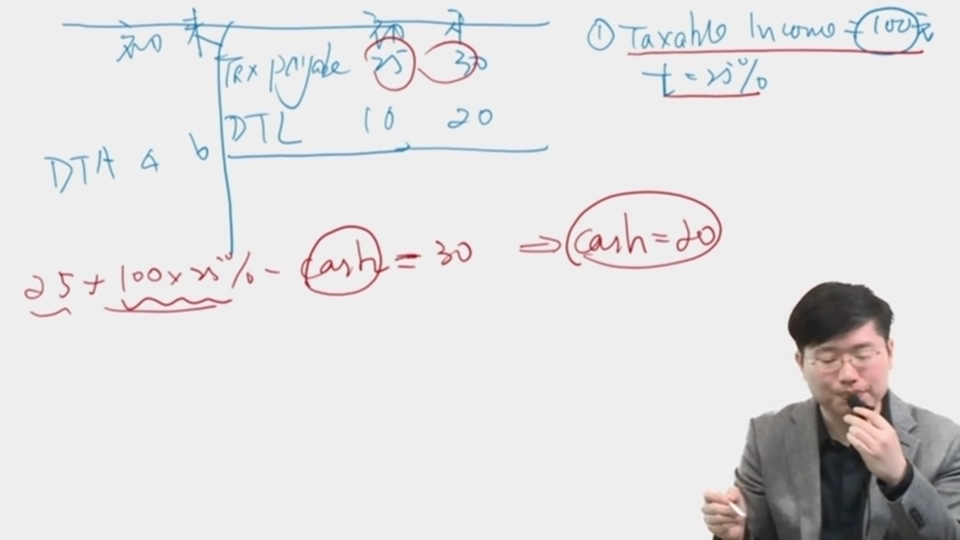 初 末 初 末
Tax payable 25 30
DTL 10 20
DTA a b
① Taxable Income = 100元
t = 25%
25 + 100 × 25% - cash = 30 ⇒ cash = 20